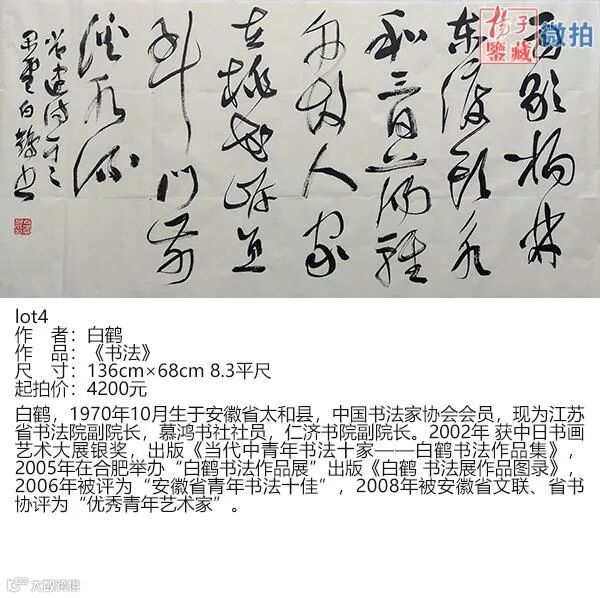 揚子
鑒藏
微拍
雨歇杨林
东渡头永
和三日荡轻
舟故人家
在桃花岸直
到门前
溪水流
常建诗
白鹤书
lot4
作 者：白鹤
作 品：《书法》
尺 寸：136cm×68cm 8.3平尺
起拍价：4200元
白鹤，1970年10月生于安徽省太和县，中国书法家协会会员，现为江苏
省书法院副院长，慕鸿书社社员，仁济书院副院长。2002年 获中日书画
艺术大展银奖，出版《当代中青年书法十家——白鹤书法作品集》，
2005年在合肥举办“白鹤书法作品展”出版《白鹤 书法展作品图录》，
2006年被评为“安徽省青年书法十佳”，2008年被安徽省文联、省书
协评为“优秀青年艺术家”。
大数跨境